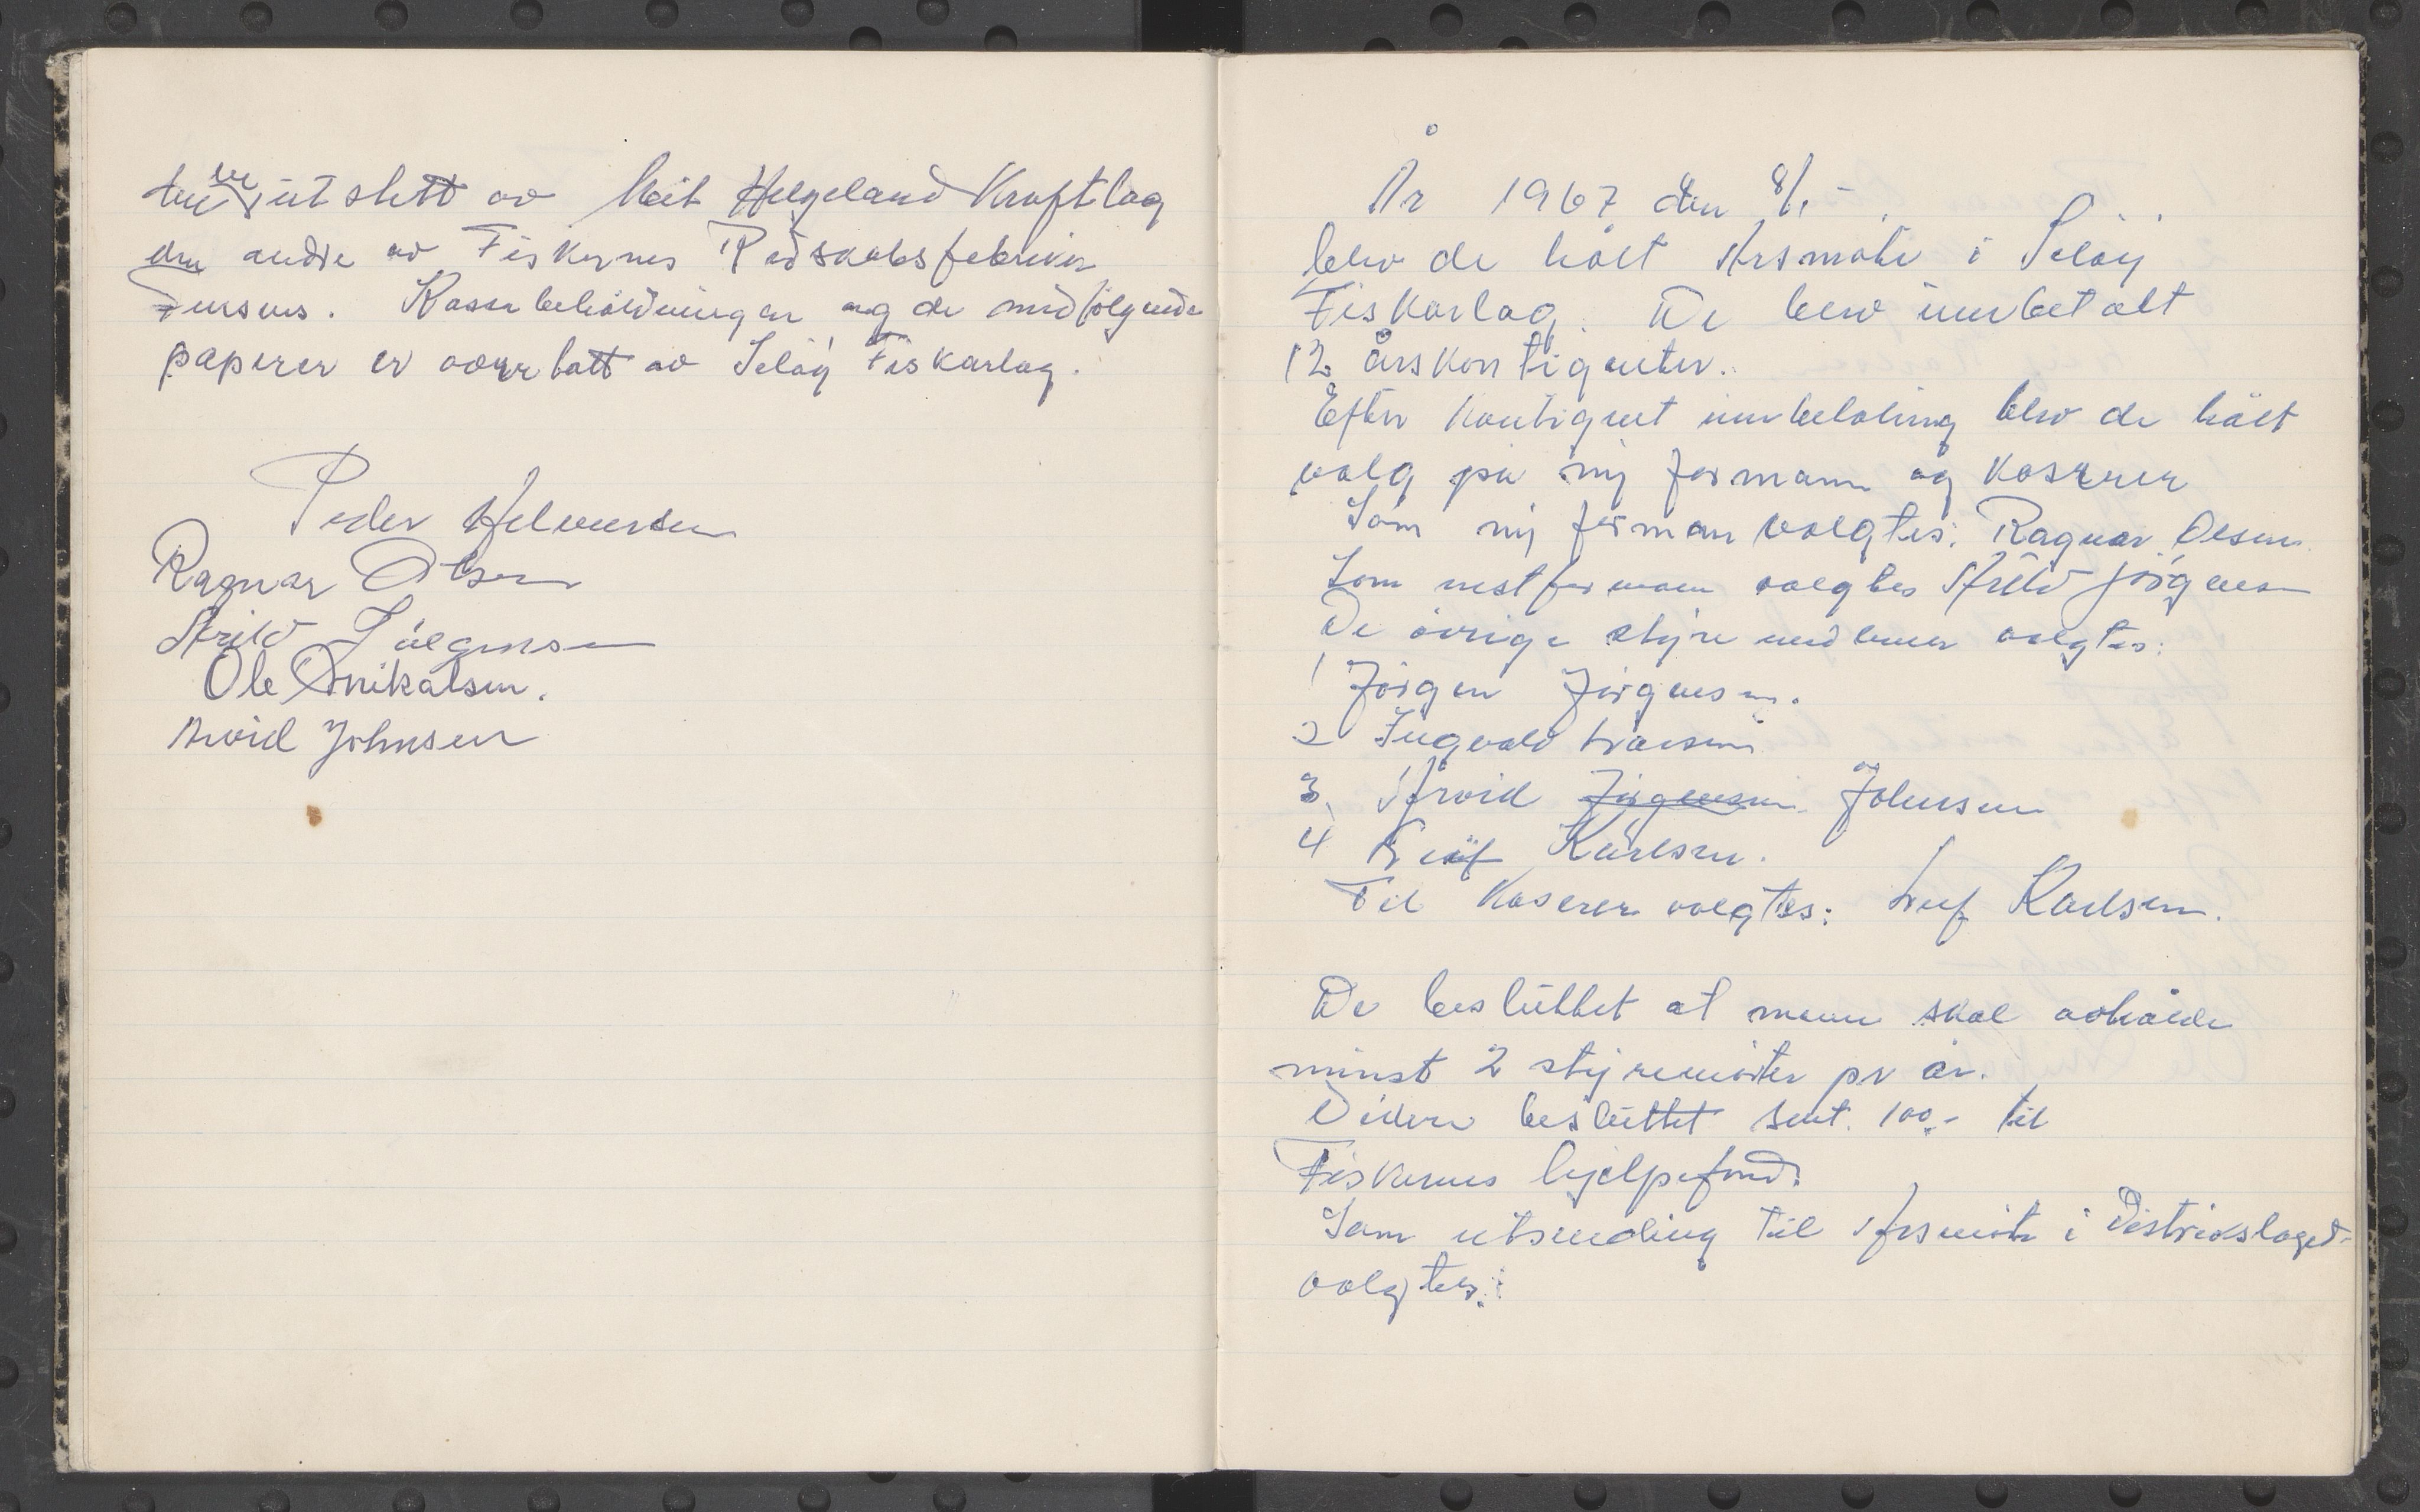 ene ve utstett av Mit Helgeland Kraftlag
den andre av Fiskernes Redskabsfabriker
Kassabehåldningen og de medfølgende
paperer er overtatt av Seløy Fiskarlag.
Peder Helversen
Ragnar Olsen
Arild Jørgensen
Ole Enikalsen.
Arvid Johnsen
År 1967 den 8/1-.
blev de hålt Årsmøte i Seløy
Fiskarlag. De blev innbetalt
12 årskontigenter.
Efter kontigent innbetaling blev de hålt
valg på ny formann og kaserer
Som ny forman valgtes: Ragnar Olsen
Som nestforman valgtes Arild Jørgensen
De øvrige styre medlemer valgtes:
1 Jørgen Jørgensen.
2 Ingvald Ivarsen
3. Arvid Jørgensen Johnsen
4 Leif Karlsen.
Til Kaserer valgtes: Leif Karlsen.
De besluttet at mann skal avholde
minst 2 styremøter pr år.
Videre besluttet sent 100.- til
Fiskernes hjelpefond.
Som utsending til Årsmøte i Distrikslaget
valgtes: